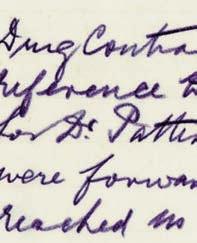 Drug Contra
reference to
for Dr. Patter
were forwar
reached us